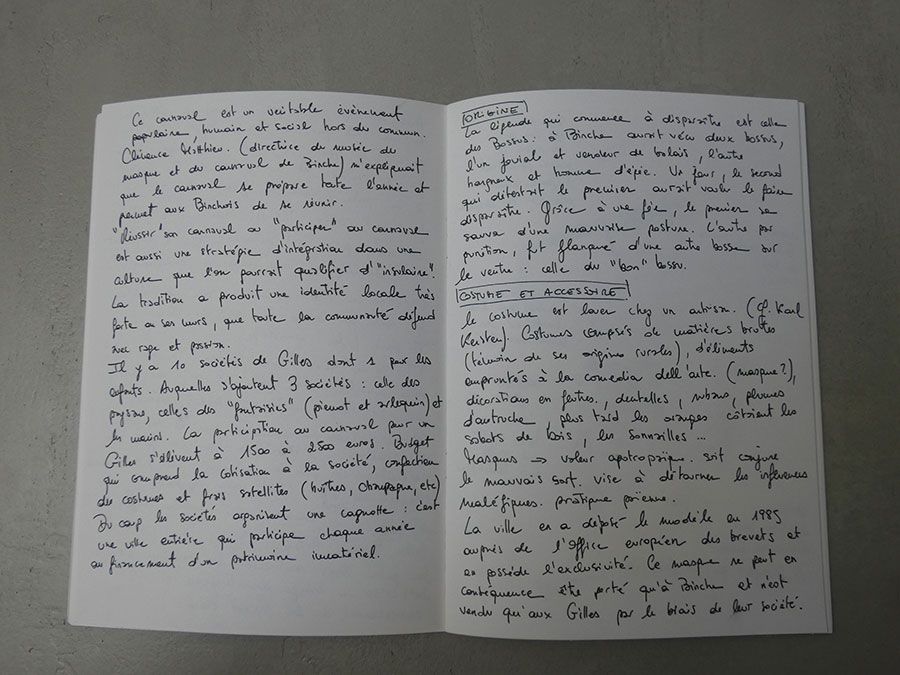 Ce carnaval est un véritable évènement
populaire, humain et social hors du commun.
Clémence Matthieu. (directrice du musée du
masque et du carnaval de Binche) m'expliquait
que le carnaval se propose toute l'année et
permet aux Binchois de se réunir.
"Réussir" son carnaval ou "participer" au carnaval
est aussi une stratégie d'intégration dans une
culture que l'on pourrait qualifier d'"insulaire".
La tradition a produit une identité locale très
forte ou ses murs, que toute la communauté défend
avec rage et passion.
Il y a 10 sociétés de Gilles dont 1 pour les
enfants. Auxquelles s'ajoutent 3 sociétés : celle des
paysans, celles des "fantaisies" (pierrot et arlequin) et
les marins. La participation au carnaval pour un
Gilles s'élèvent à 1500 à 2500 euros. Budget
qui comprend la cotisation à la société, confection
des costumes et frais satellites (huîtres, champagne, etc)
Du coup les sociétés organisent une cagnotte : c'est
une ville entière qui participe chaque année
au financement d'un patrimoine immatériel.
ORIGINE
La légende qui commence à disparaître est celle
des Bossus : à Binche aurait vécu deux bossus,
l'un jovial et vendeur de balais, l'autre
hargneux et homme d'épée. Un jour, le second
qui détestait le premier aurait voulu le faire
disparaître. Grâce à une fée, le premier se
sauva d'une mauvaise posture. L'autre par
punition, fut flanqué d'une autre bosse sur
le ventre : celle du "bon" bossu.
COSTUME ET ACCESSOIRE
le costume est louer chez un artisan. (cf. Karl
Kersten). Costumes composés de matières brutes
(témoin de ses origines rurales), d'éléments
empruntés à la comedia dell'arte. (masque?),
décorations en feutres, dentelles, rubans, plumes
d'autruche, plus tard les oranges côtoient les
sabots de bois, les sonnailles ...
Masques => valeur apotropaïque. soit conjure
le mauvais sort. vise à détourner les influences
maléfiques. pratique païenne.
La ville en a déposé le modèle en 1985
auprès de l'Office européen des brevets et
en possède l'exclusivité. Ce masque ne peut en
conséquence être porté qu'à Binche et n'est
vendu qu'aux Gilles par le biais de leur société.